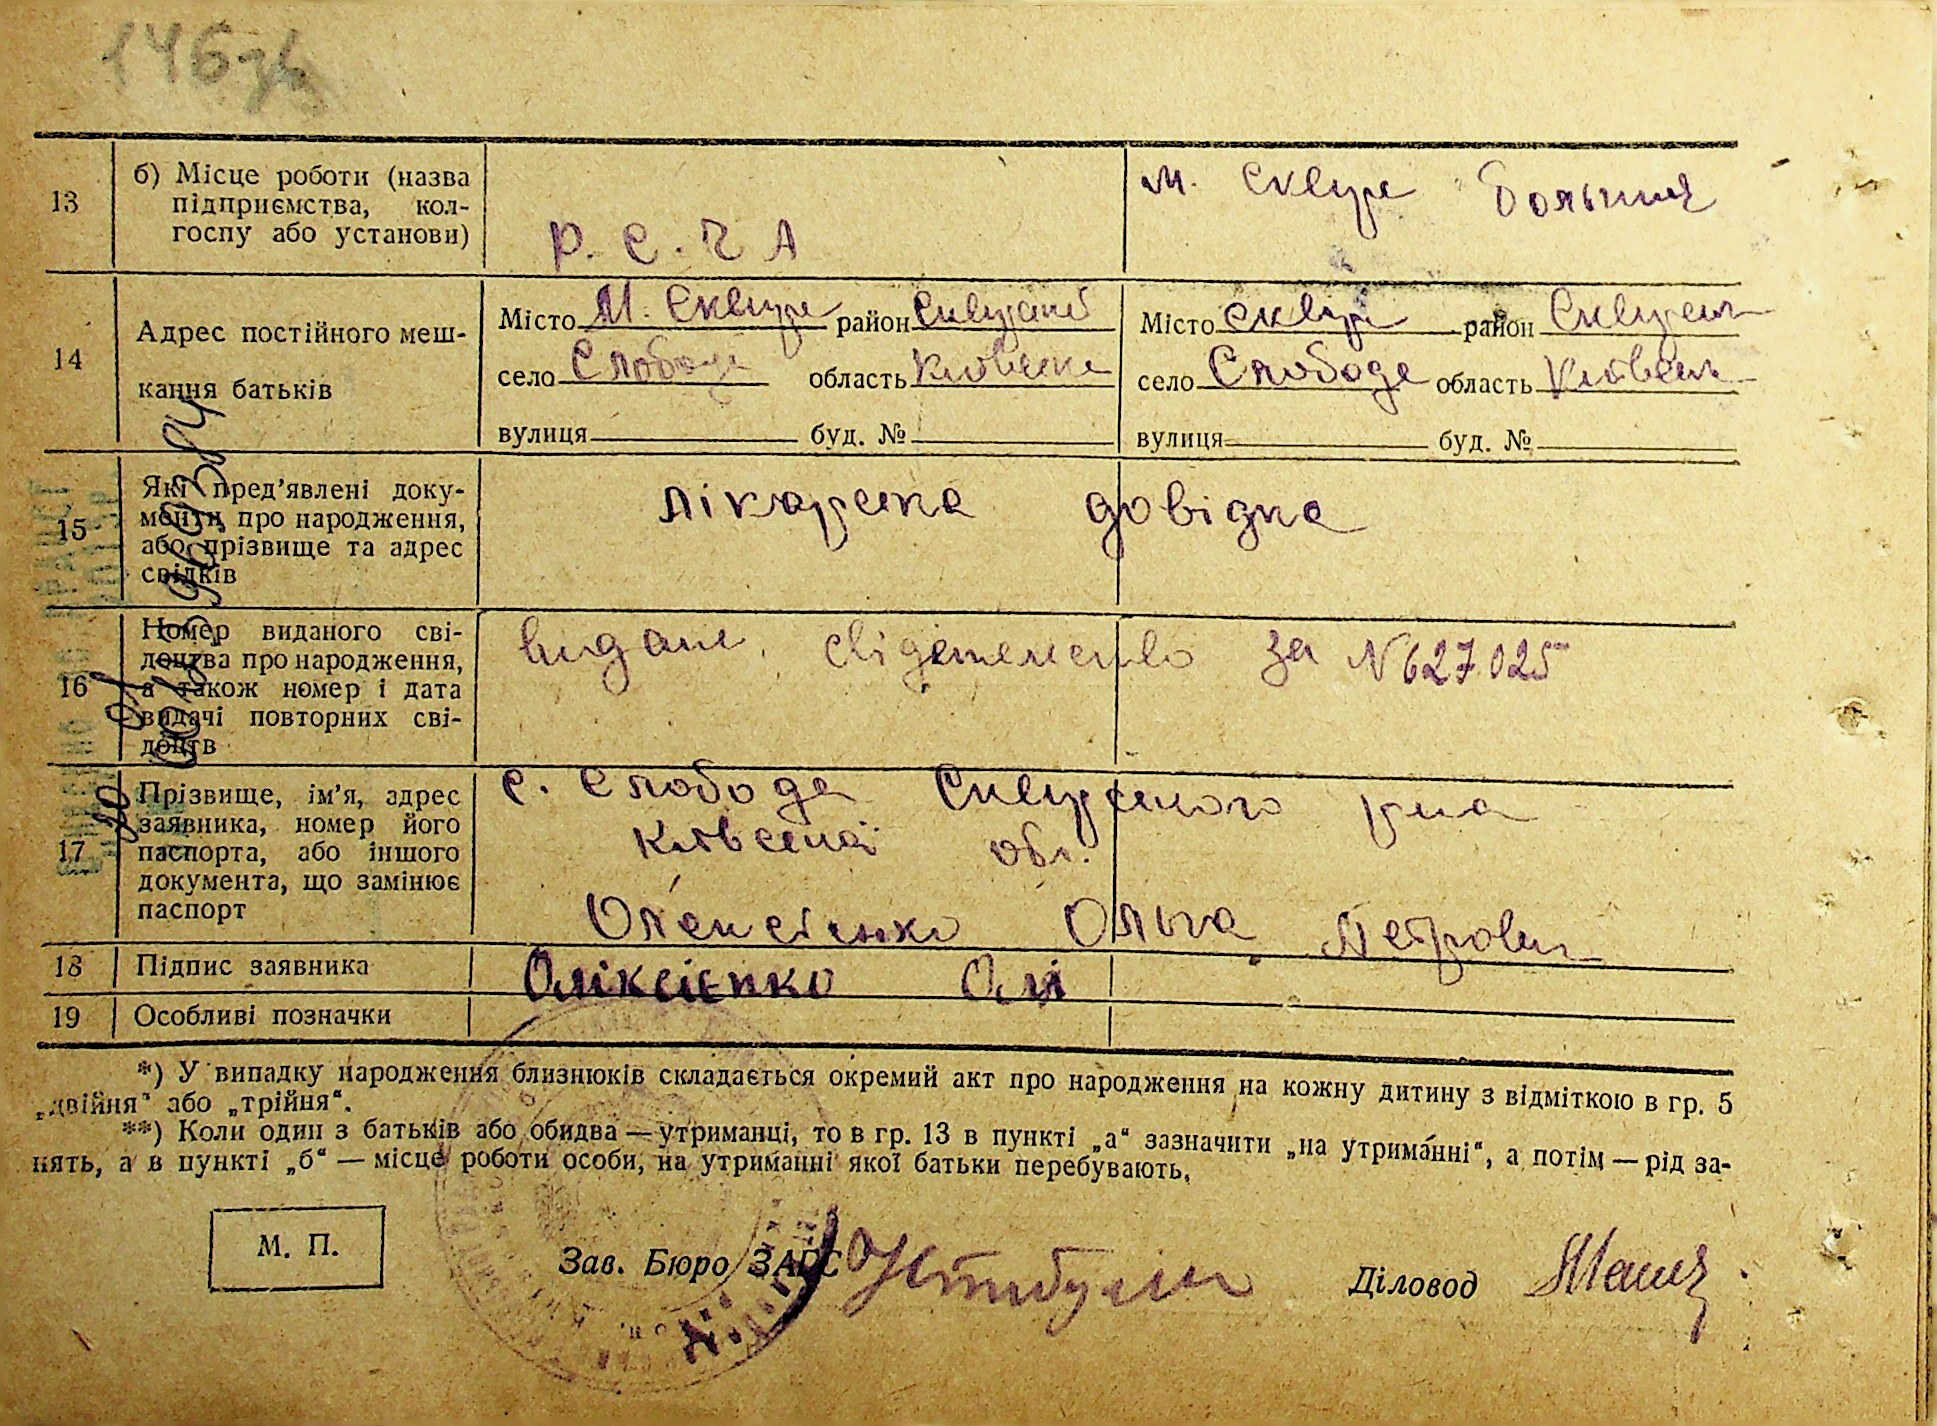 146 зв
13 б) Місце роботи (назва
підприємства, кол-
госпу або установи)
Р. С. Ч А
м. Сквира Больниця
14 Адрес постійного меш-
кання батьків
Місто М. Сквира район Сквирський
село Слобода область Київська
вулиця буд. №
Місто Сквира район Сквирськ
село Слобода область Київськ
вулиця буд. №
15 Які пред’явлені доку-
менти про народження,
або прізвище та адрес
свідків
лікарська довідка
16 Номер виданого сві-
доцтва про народження,
а також номер і дата
видачі повторних сві-
доцтв
видане свідетельство за №627025
17 Прізвище, ім’я, адрес
заявника, номер його
паспорта, або іншого
документа, що замінює
паспорт
с. Слобода Сквирського р-на
Київської обл.
Олексієнко Ольга Петровн
18 Підпис заявника
Оліксієнко Олі
19 Особливі позначки
*) У випадку народження близнюків складається окремий акт про народження на кожну дитину з відміткою в гр. 5
„двійня“ або „трійня“.
**) Коли один з батьків або обидва — утриманці, то в гр. 13 в пункті „а“ зазначити „на утриманні“, а потім — рід за-
нять, а в пункті „б“ — місце роботи особи, на утриманні якої батьки перебувають.
М. П.
Зав. Бюро ЗАГС
Діловод